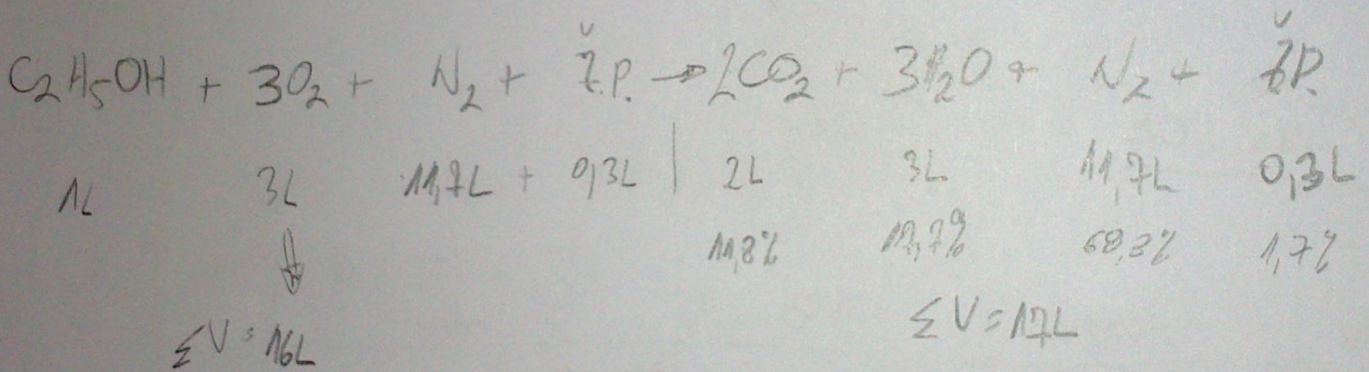 C₂H₅OH + 3O₂ + N₂ + Ž.P. → 2CO₂ + 3H₂O + N₂ + ŽP.
1L 3L 11,7L + 0,3L | 2L 3L 11,7L 0,3L
11,8% 17,7% 68,3% 1,7%
⇓
ΣV = 16L ΣV = 17L